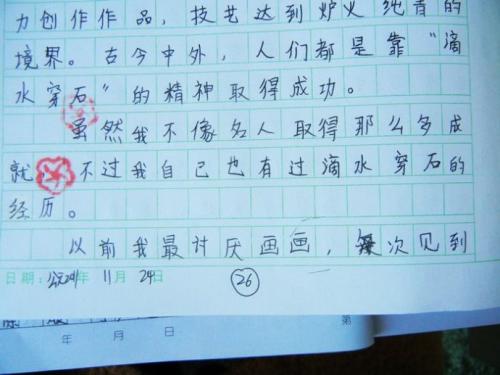 力创作作品，技艺达到炉火纯青的
境界。古今中外，人们都是靠“滴
水穿石”的精神取得成功。
虽然我不像名人取得那么多成
就，不过我自己也有过滴水穿石的
经历。
以前我最讨厌画画，每次见到
日期： 年 11 月 24 日
26
年 月 日
第